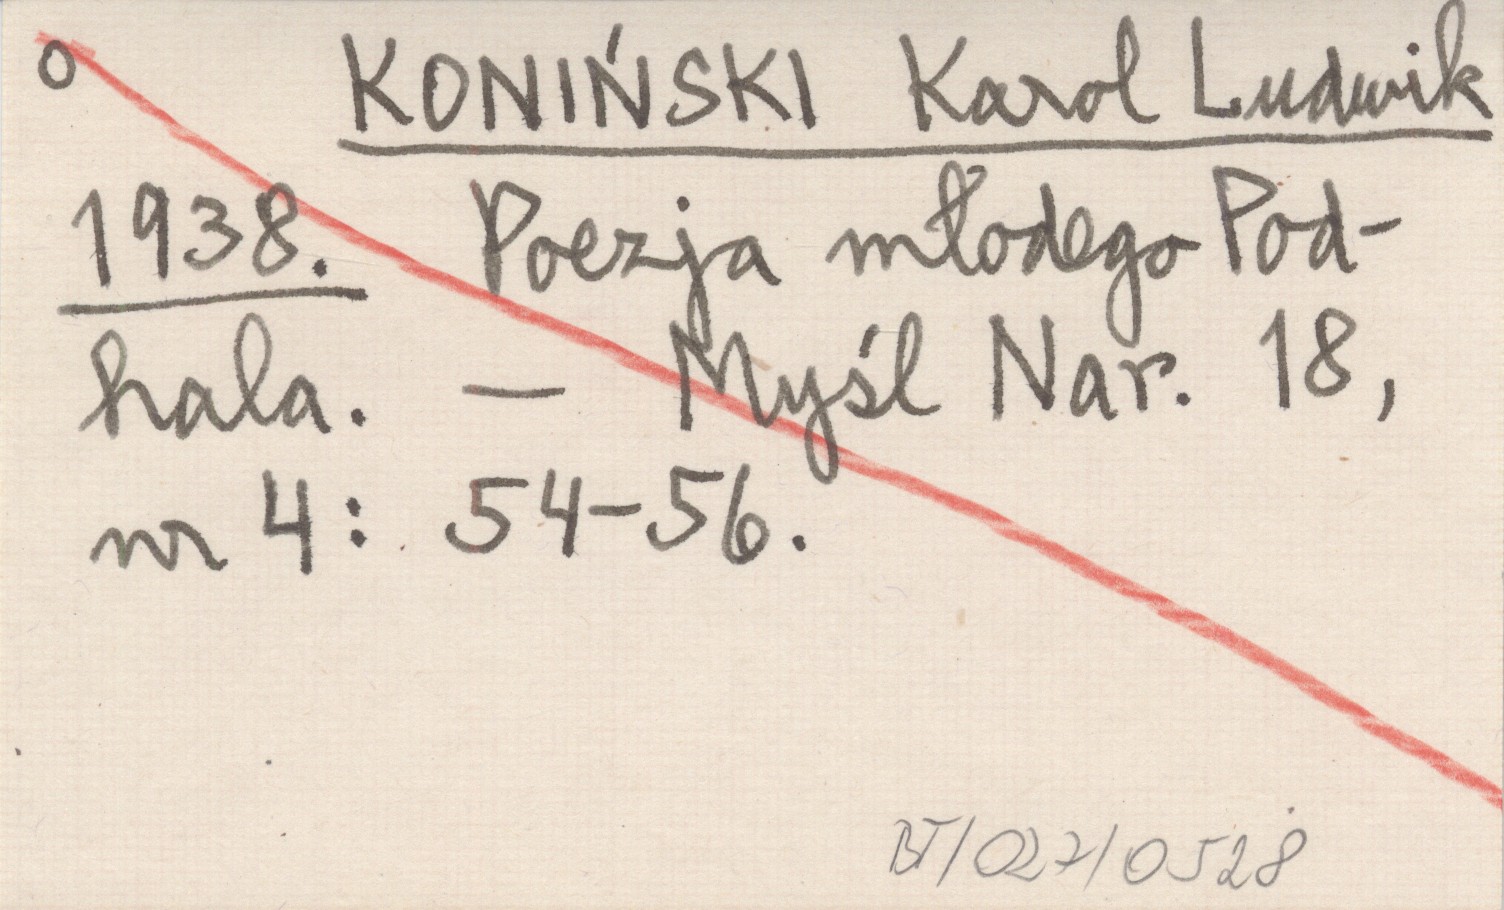 o KONIŃSKI Karol Ludwik
1938. Poezja młodego Pod-
hala. — Myśl Nar. 18,
nr 4: 54-56.
BT/027/0528